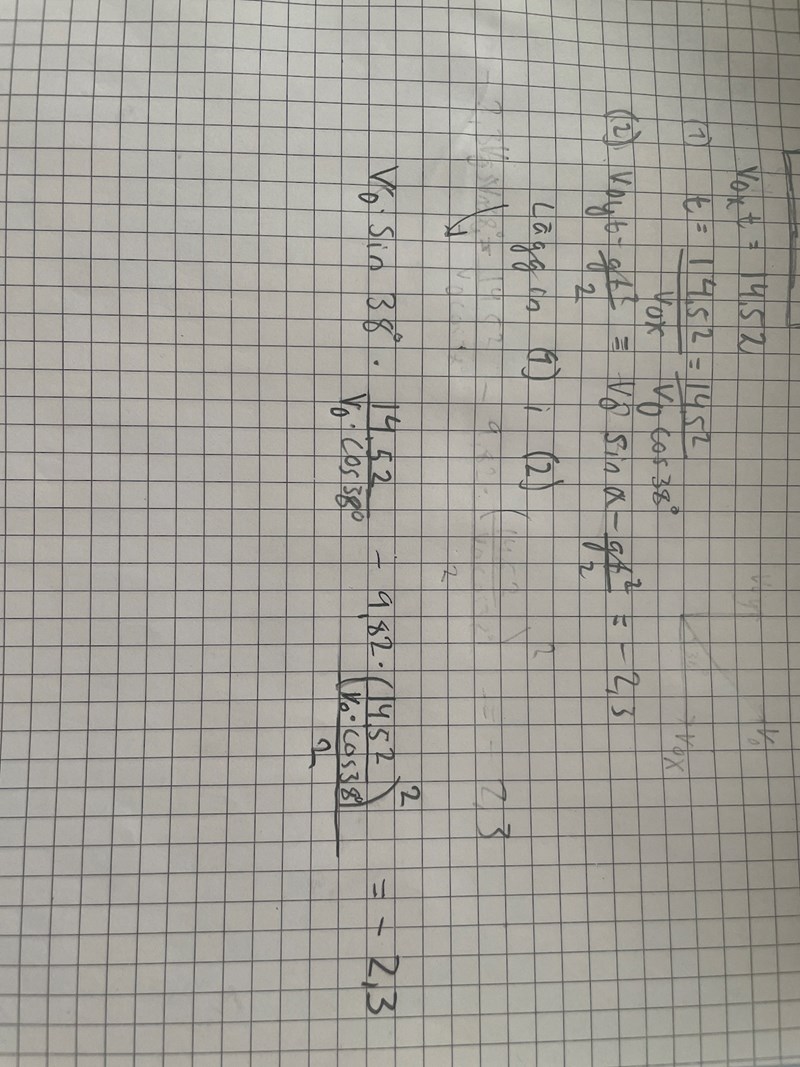 V₀ₓt = 14,52
(1) t = 14,52/V₀ₓ = 14,52/(V₀ cos 38°)
(2) V₀yt - gt²/2 = V₀ sin α - gt²/2 = -2,3
Lägg in (1) i (2)
V₀ · sin 38° · 14,52/(V₀ · cos 38°) - 9,82 · (14,52/(V₀ · cos 38))²/2 = -2,3